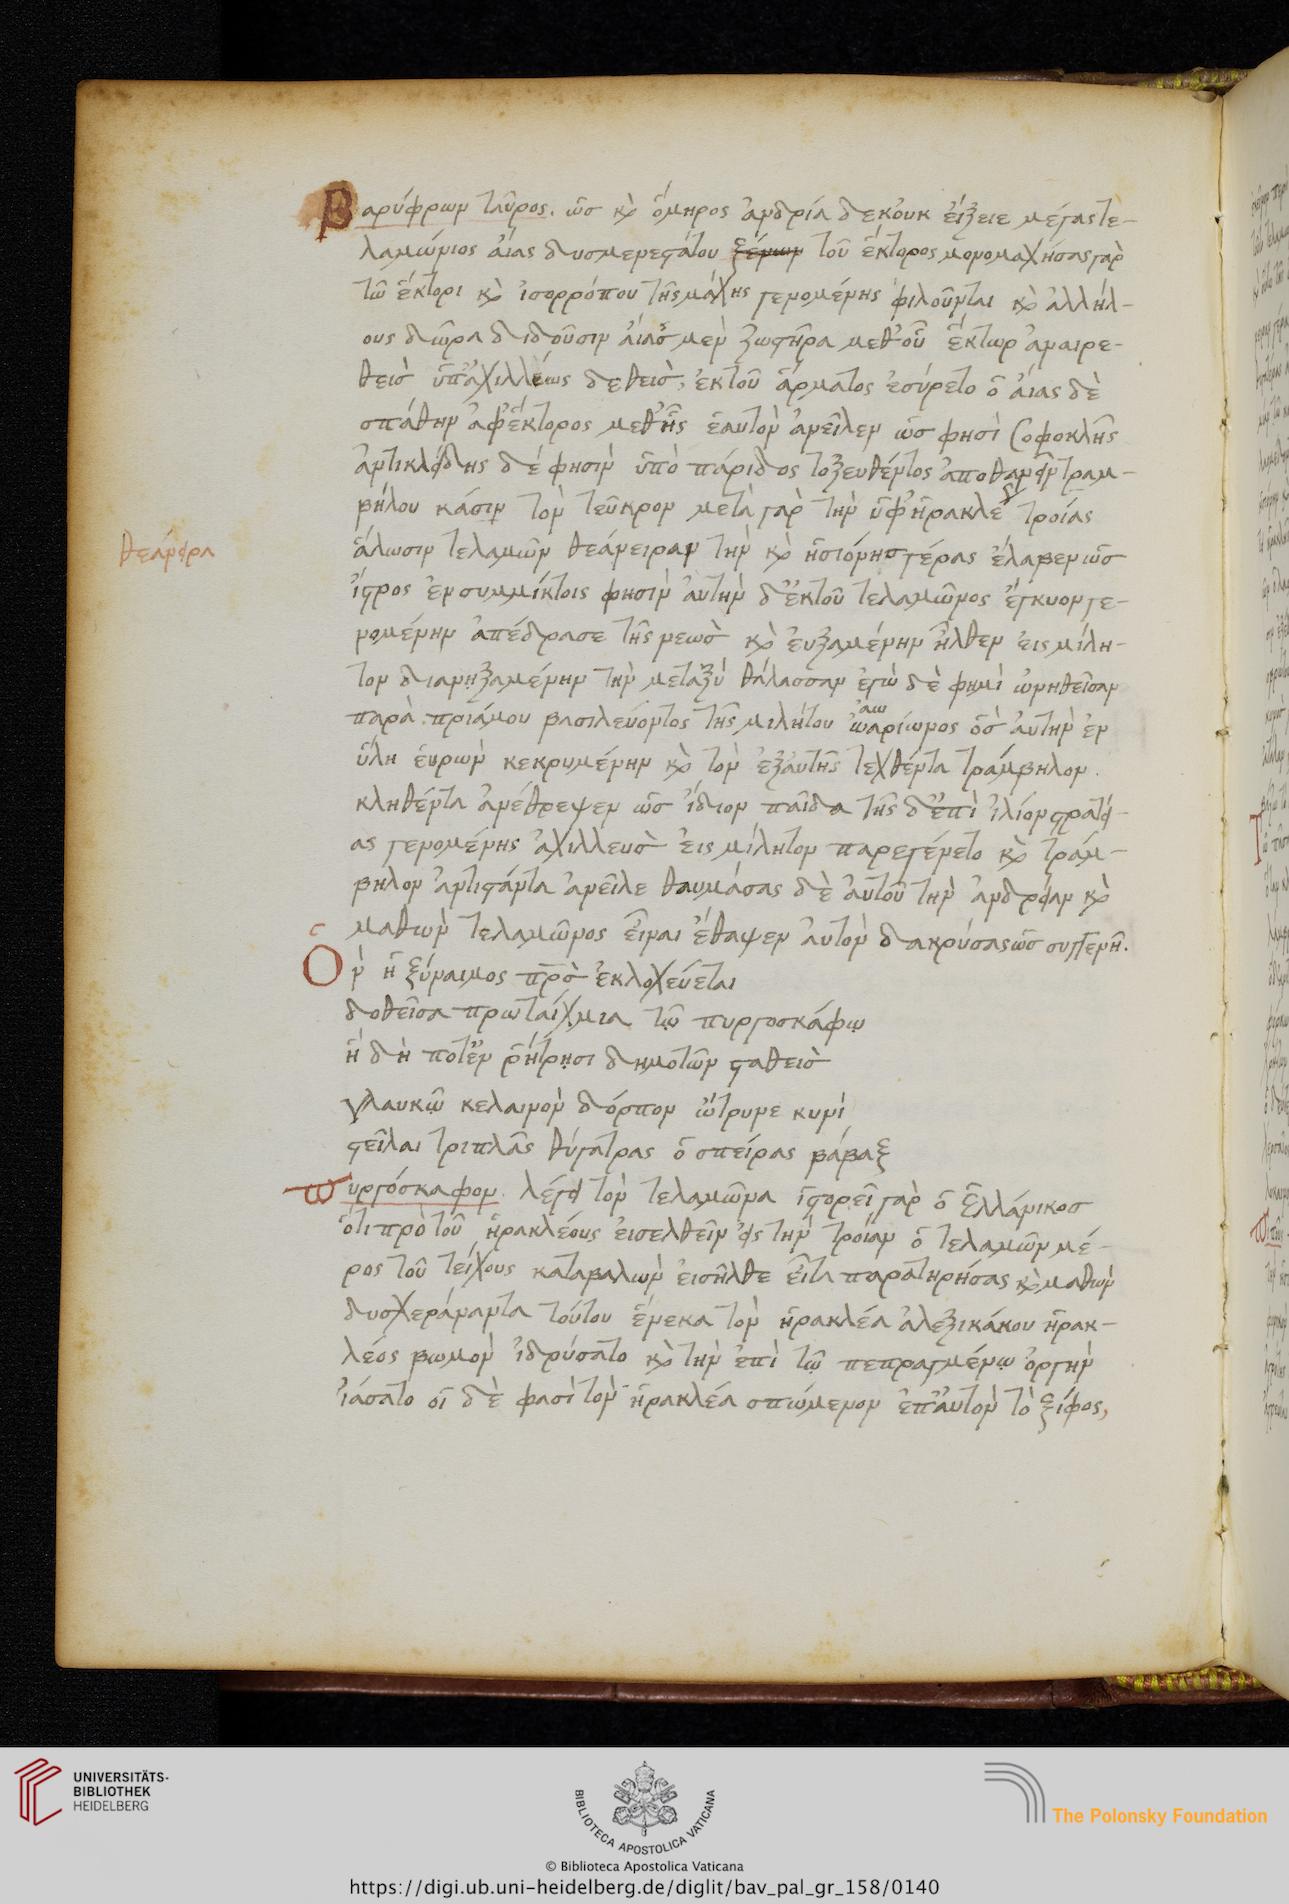 Βαρύφρων ταῦρος. ὡσ κὶ ὅμηρος ἀνδρία δεκοὐκ εἴξειε μέγας τε-
λαμώνιος αἴας δυσμενεστάτου ξένων τοῦ ἕκτορος μονομαχήσας γὰρ
τῶ ἕκτορι κὶ ἰσορρόπου τῆς μάχης γενομένης φιλοῦνται κὶ ἀλλήλ-
ους δῶρα διδοῦσιν αἴας μὲν ζωστῆρα μεθ οὗ ἕκτωρ ἀναιρε-
θεισ ὑπ ἀχιλλέως δεθεισ, ἐκ τοῦ ἅρματος ἐσύρετο ὁ αἴας δὲ
σπάθην ἀφ ἕκτορος μεθ ἧς ἑαυτὸν ἀνεῖλεν ὥσ φησὶ Σοφοκλῆς
ἀντικλείδης δέ φησιν ὑπὸ πάριδος τοξευθέντος ἀποθανεῖν τραμ-
βήλου κάσιν τὸν τεῦκρον μετὰ γὰρ τὴν ὑφ ἡρακλέους τροίας
θεάνειρα
ἅλωσιν τελαμὼν θεάνειραν τὴν κὶ ἡσιόνην γέρας ἔλαβεν ὡσ
ἴστρος ἐν συμμίκτοις φησὶν αὐτὴν δ ἐκ τοῦ τελαμῶνος ἔγκυον γε-
νομένην ἀπέδρασε τῆς νεωσ κὶ εὐξαμένην ἦλθεν εἰς μίλη-
τον διανηξαμένην τὴν μεταξύ θάλασσαν ἐγὼ δὲ φημὶ ὠνηθεῖσαν
παρὰ πριάμου βασιλεύοντος τῆς μιλήτου ὠαρίωνος ὅσ αὐτὴν ἐν
ὕλη εὑρὼν κεκρυμένην κὶ τὸν ἐξ αὐτῆς τεχθέντα τράμβηλον.
κληθέντα ἀνέθρεψεν ὡσ ἴδιον παῖδα τῆς δ ἐπὶ ἰλίον στρατεί-
ας γενομένης ἀχιλλεὺσ εἰς μίλητον παρεγένετο κὶ τράμ-
βηλον ἀντιστάντα ἀνεῖλε θαυμάσας δὲ αὐτοῦ τὴν ἀνδρείαν κὶ
μαθὼν τελαμῶνος εἶναι ἔθαψεν αὐτὸν δακρύσας ὡσ συγγενῆ.
Ὃν ἡ ξύναιμος πρὸσ ἐκλοχεύεται
δοθεῖσα πρωταίχμια τῷ πυργοσκάφῳ
ἣ δή ποτ ἐν ῥήτρῃσι δημοτῶν σταθεισ
γλαυκῷ κελαινὸν δόρπον ὤτρυνε κυνὶ
στεῖλαι τριπλᾶς θύγατρας ὁ σπείρας βάβαξ
πυργόσκαφον. λέγει τὸν τελαμῶνα ἱστορεῖ γὰρ ὁ ἑλλάνικοσ
ὅτι πρὸ τοῦ ἡρακλέους εἰσελθεῖν εἰς τὴν τροίαν ὁ τελαμὼν μέ-
ρος τοῦ τείχους καταβαλὼν εἰσῆλθε εἶτα παρατηρήσας κὶ μαθὼν
δυσχεράναντα τούτου ἕνεκα τὸν ἡρακλέα ἀλεξικάκου ἡρακ-
λέος βωμὸν ἱδρύσατο κὶ τὴν ἐπὶ τῷ πεπραγμένῳ ὀργὴν
ἰάσατο οἱ δὲ φασὶ τὸν ἡρακλέα σπώμενον ἐπ αὐτὸν τὸ ξίφος,
UNIVERSITÄTS-
BIBLIOTHEK
HEIDELBERG
BIBLIOTECA APOSTOLICA VATICANA
The Polonsky Foundation
© Biblioteca Apostolica Vaticana
https://digi.ub.uni-heidelberg.de/diglit/bav_pal_gr_158/0140